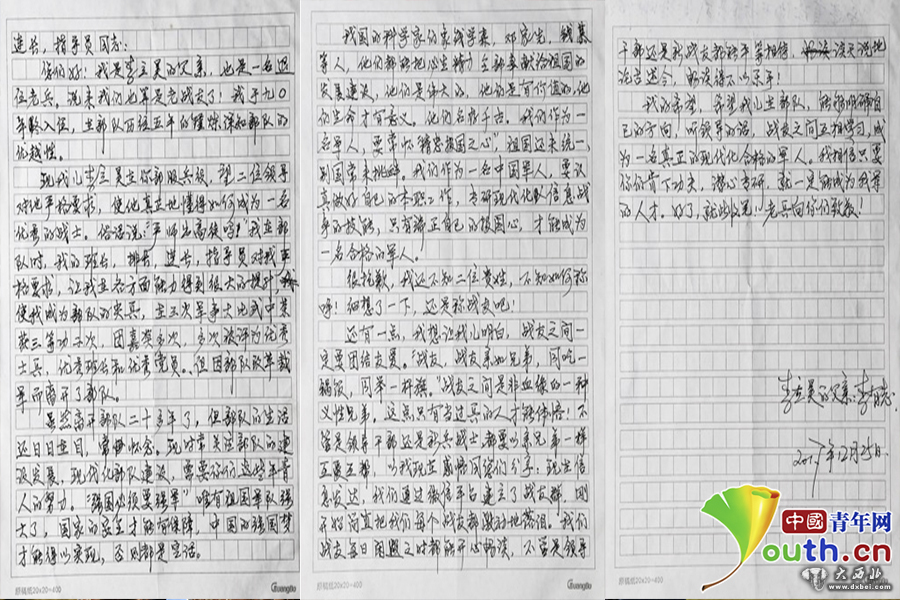 连长，指导员同志：
你们好！我是李立昊的父亲，也是一名退
伍老兵。说来我们也算是老战友了！我于九〇
年龄入伍，在部队历经五年的 深知部队的
优越性。
现我儿李立昊在你部服兵役，望二位领导
对他严格要求，使他真正地懂得如何成为一名
优秀的战士。俗话说："严师出高徒吗！"我在部
队时，我的班长，排长，连长，指导员对我严
格要求，让我在各方面能力得到很大的提升，
使我成为部队的尖兵，在三次军事大比武中荣
获三等功二次，团嘉奖 次， 次被评为优秀
士兵，优秀班长和优秀党员。但因部队改革裁
军而离开了部队。
虽然离开部队二十多年了，但部队的生活
还日日在目， 怀念。现时常关注部队的建
设发展，现代化部队建设，需要你们这些年青
人的努力。"强国必须要强军"唯有祖国军队强
大了，国家的安全才能有保障，中国的强国梦
才能得以实现，否则都是空话。
我国的科学家们家钱学森，邓家先，钱
等人，他们都能把毕生精力全部奉献给祖国的
发展建设，他们是伟大的，他们是有价值的，他
们的生命才有意义。他们名括千古。我们作为一
名军人，要常怀"精忠报国之心"，祖国还未统一，
别国常来挑衅。我们作为一名中国军人，要认
真做好自已的本职工作，专研现代化部队信息战
争的技能，只有端正自己的报国心，才能成为
一名合格的军人。
很抱歉，我还不知二位贵姓，不知如何称
呼！细想了一下，还是称战友吧！
还有一点，我想让我儿明白，战友之间一
定要团结友爱。"战友，战友亲如兄弟，同吃一
锅饭，同举一杆旗。"战友之间是非血缘的一种
义性兄弟，这点只有当过兵的人才能体悟！不
管是领导干部还是新兵战士都要以亲兄弟一样
互爱互帮。以我现在感悟同你们分享：现在信
息发达，我们通过微信平台建立了战友群，刚
开始简直把我们每个战友都激动地落泪。我们
战友每日闲暇之时都能开心畅谈，不管是领导
干部还是新战友都能平等相待， 谈天说地
论古述今，畅谈得不以乐乎！
我的希望，希望我儿在部队，能够明确自
己的方向，听领导的话，战友之间互相学习，成
为一名真正的现代化合格的军人。我相信只要
你们肯下功夫，潜心专研，就一定能成为我军
的人才。好了，就些收笔！老兵向你们致敬！
李立昊的父亲：李 志
2017年12月25日
稿纸20×20=400
Guangbo
稿纸20×20=400
Guangbo
中国青年网
Youth.cn
大西北
www.dxbei.com